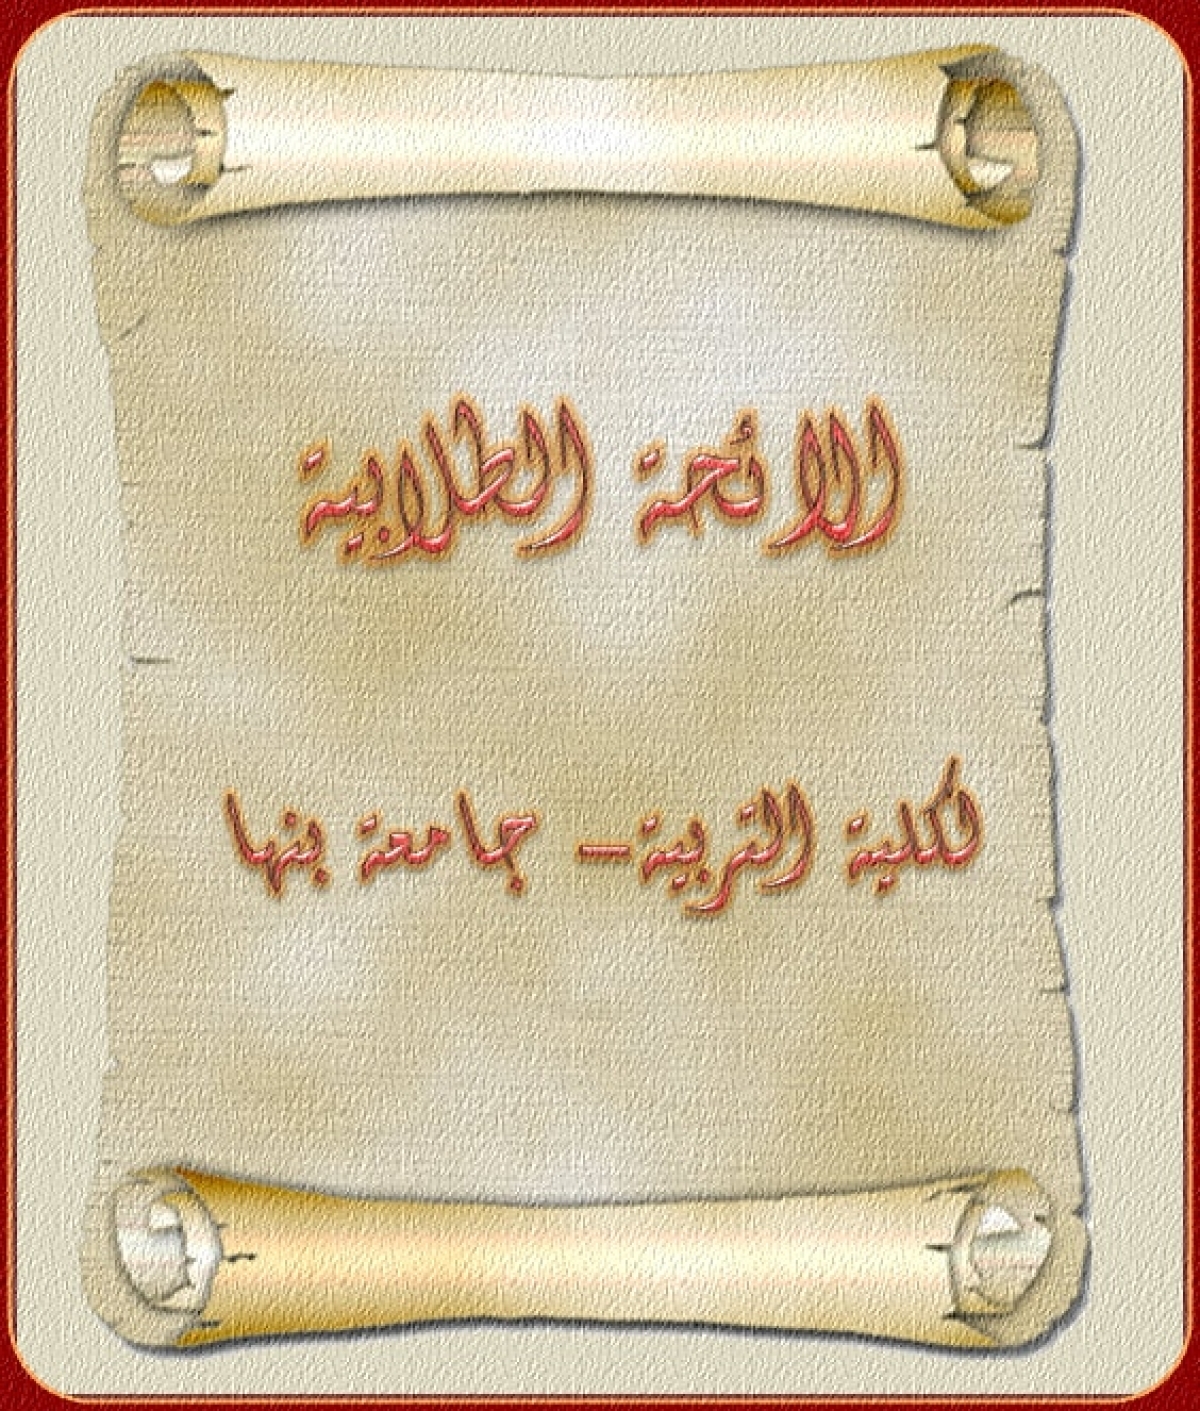 اللائحة الطلابية
لكلية التربية – جامعة بنها